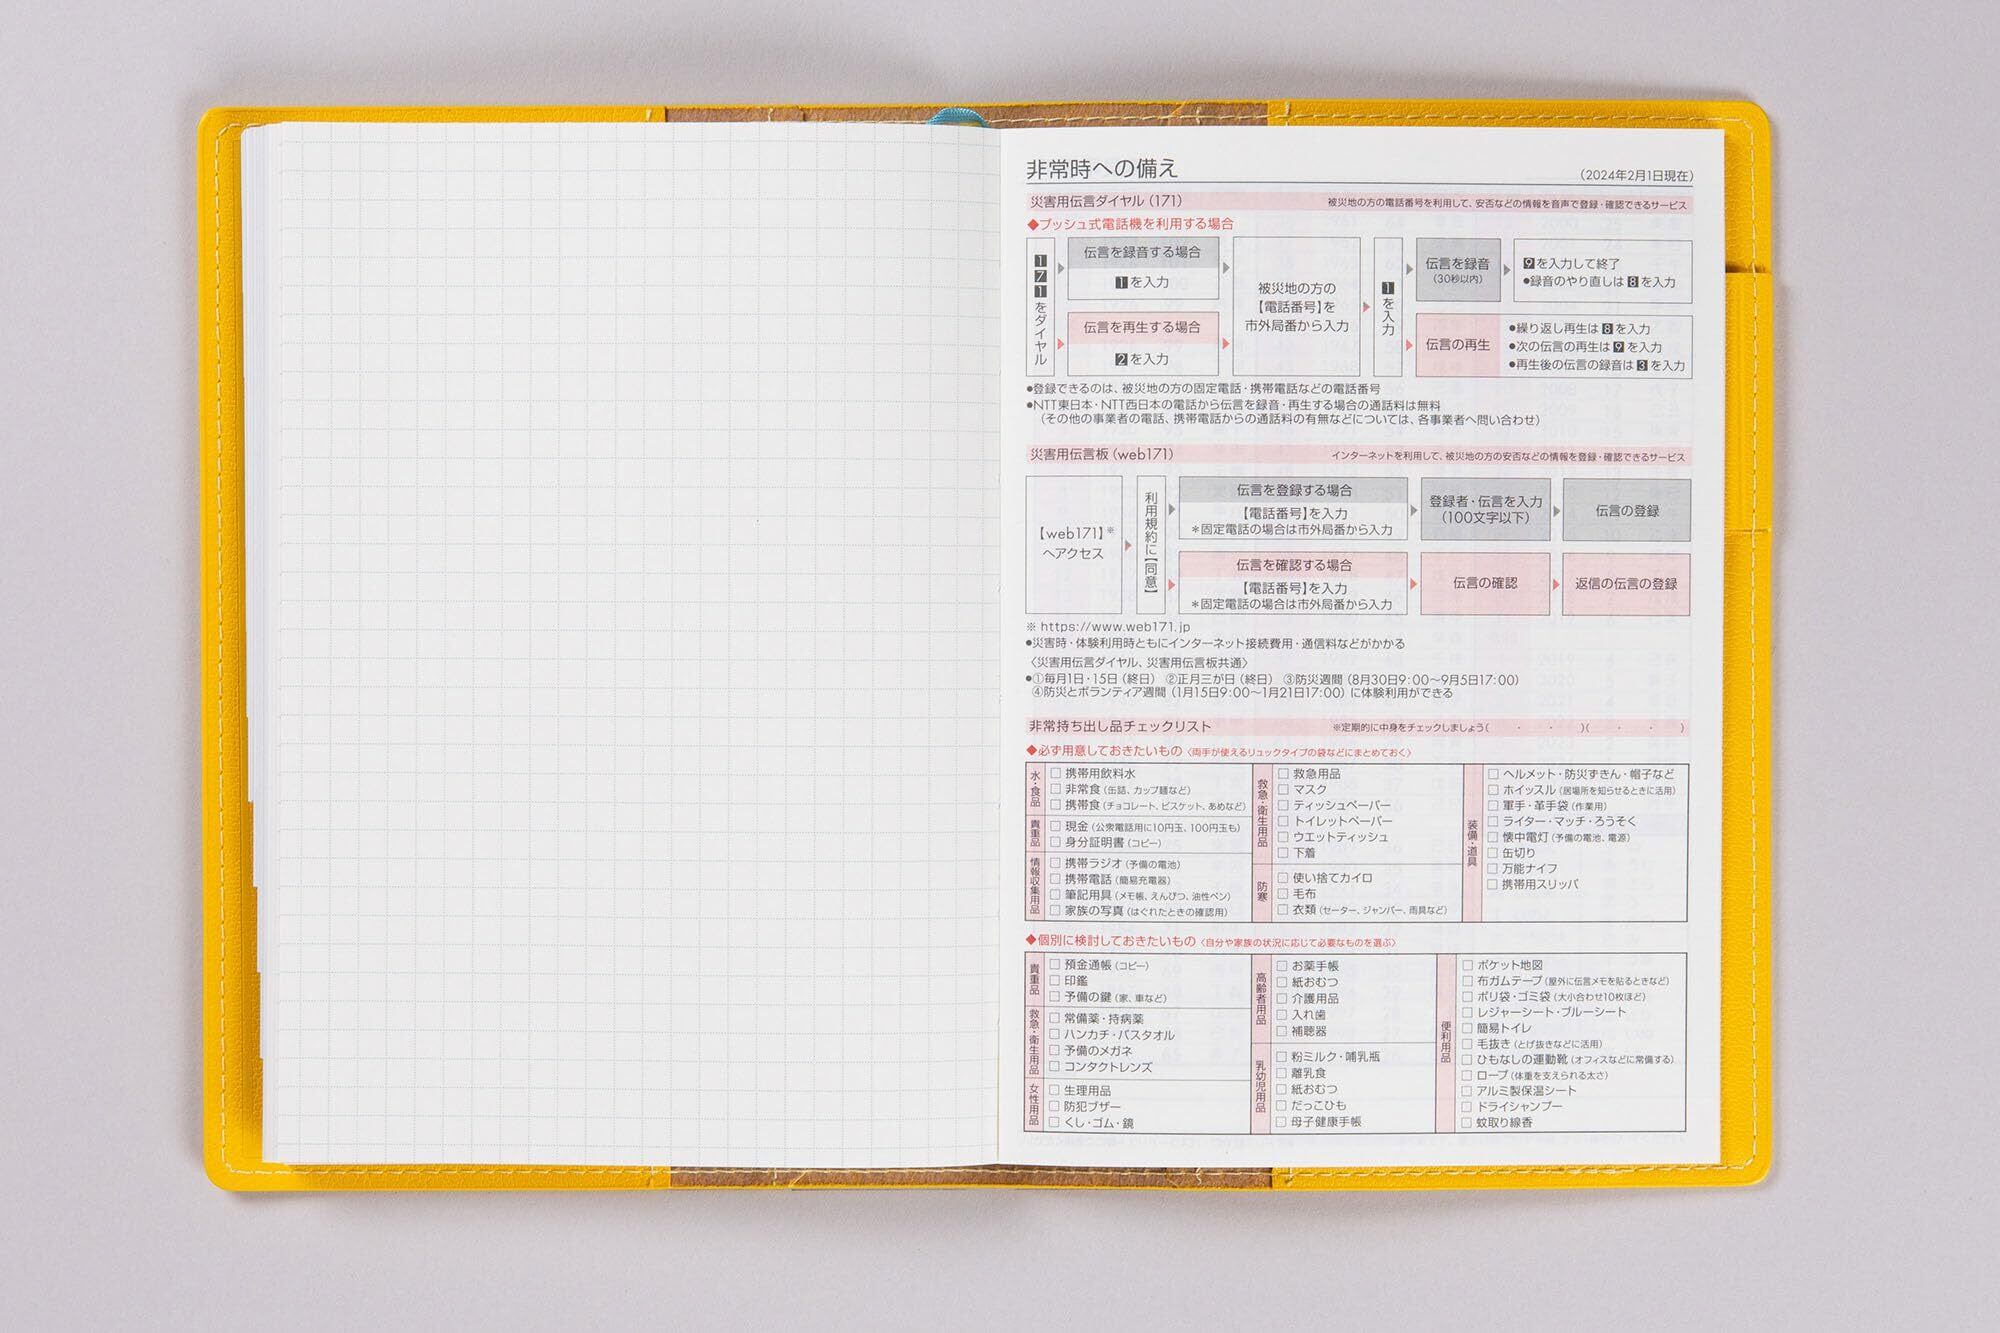 非常時への備え
（2024年2月1日現在）
災害用伝言ダイヤル（171）
被災地の方の電話番号を利用して、安否などの情報を音声で登録・確認できるサービス
◆プッシュ式電話機を利用する場合
171をダイヤル
伝言を録音する場合
1を入力
伝言を再生する場合
2を入力
被災地の方の
【電話番号】を
市外局番から入力
1を入力
伝言を録音
（30秒以内）
9を入力して終了
●録音のやり直しは8を入力
伝言の再生
●繰り返し再生は8を入力
●次の伝言の再生は9を入力
●再生後の伝言の録音は3を入力
●登録できるのは、被災地の方の固定電話・携帯電話などの電話番号
●NTT東日本・NTT西日本の電話から伝言を録音・再生する場合の通話料は無料
（その他の事業者の電話、携帯電話からの通話料の有無などについては、各事業者へ問い合わせ）
災害用伝言板（web171）
インターネットを利用して、被災地の方の安否などの情報を登録・確認できるサービス
【web171】※
へアクセス
利用規約に【同意】
伝言を登録する場合
【電話番号】を入力
＊固定電話の場合は市外局番から入力
登録者・伝言を入力
（100文字以下）
伝言の登録
伝言を確認する場合
【電話番号】を入力
＊固定電話の場合は市外局番から入力
伝言の確認
返信の伝言の登録
※ https://www.web171.jp
●災害時・体験利用時ともにインターネット接続費用・通信料などがかかる
〈災害用伝言ダイヤル、災害用伝言板共通〉
●①毎月1日・15日（終日） ②正月三が日（終日） ③防災週間（8月30日9：00～9月5日17：00）
④防災とボランティア週間（1月15日9：00～1月21日17：00）に体験利用ができる
非常持ち出し品チェックリスト
※定期的に中身をチェックしましょう（ ・ ・ ）（ ・ ・ ）
◆必ず用意しておきたいもの〈両手が使えるリュックタイプの袋などにまとめておく〉
水・食品
□ 携帯用飲料水
□ 非常食（缶詰、カップ麺など）
□ 携帯食（チョコレート、ビスケット、あめなど）
貴重品
□ 現金（公衆電話用に10円玉、100円玉も）
□ 身分証明書（コピー）
情報収集用品
□ 携帯ラジオ（予備の電池）
□ 携帯電話（簡易充電器）
□ 筆記用具（メモ帳、えんぴつ、油性ペン）
□ 家族の写真（はぐれたときの確認用）
救急・衛生用品
□ 救急用品
□ マスク
□ ティッシュペーパー
□ トイレットペーパー
□ ウエットティッシュ
□ 下着
防寒
□ 使い捨てカイロ
□ 毛布
□ 衣類（セーター、ジャンパー、雨具など）
装備・道具
□ ヘルメット・防災ずきん・帽子など
□ ホイッスル（居場所を知らせるときに活用）
□ 軍手・革手袋（作業用）
□ ライター・マッチ・ろうそく
□ 懐中電灯（予備の電池、電源）
□ 缶切り
□ 万能ナイフ
□ 携帯用スリッパ
◆個別に検討しておきたいもの〈自分や家族の状況に応じて必要なものを選ぶ〉
貴重品
□ 預金通帳（コピー）
□ 印鑑
□ 予備の鍵（家、車など）
救急・衛生用品
□ 常備薬・持病薬
□ ハンカチ・バスタオル
□ 予備のメガネ
□ コンタクトレンズ
女性用品
□ 生理用品
□ 防犯ブザー
□ くし・ゴム・鏡
高齢者用品
□ お薬手帳
□ 紙おむつ
□ 介護用品
□ 入れ歯
□ 補聴器
乳幼児用品
□ 粉ミルク・哺乳瓶
□ 離乳食
□ 紙おむつ
□ だっこひも
□ 母子健康手帳
便利用品
□ ポケット地図
□ 布ガムテープ（屋外に伝言メモを貼るときなど）
□ ポリ袋・ゴミ袋（大小合わせ10枚ほど）
□ レジャーシート・ブルーシート
□ 簡易トイレ
□ 毛抜き（とげ抜きなどに活用）
□ ひもなしの運動靴（オフィスなどに常備する）
□ ロープ（体重を支えられる太さ）
□ アルミ製保温シート
□ ドライシャンプー
□ 蚊取り線香